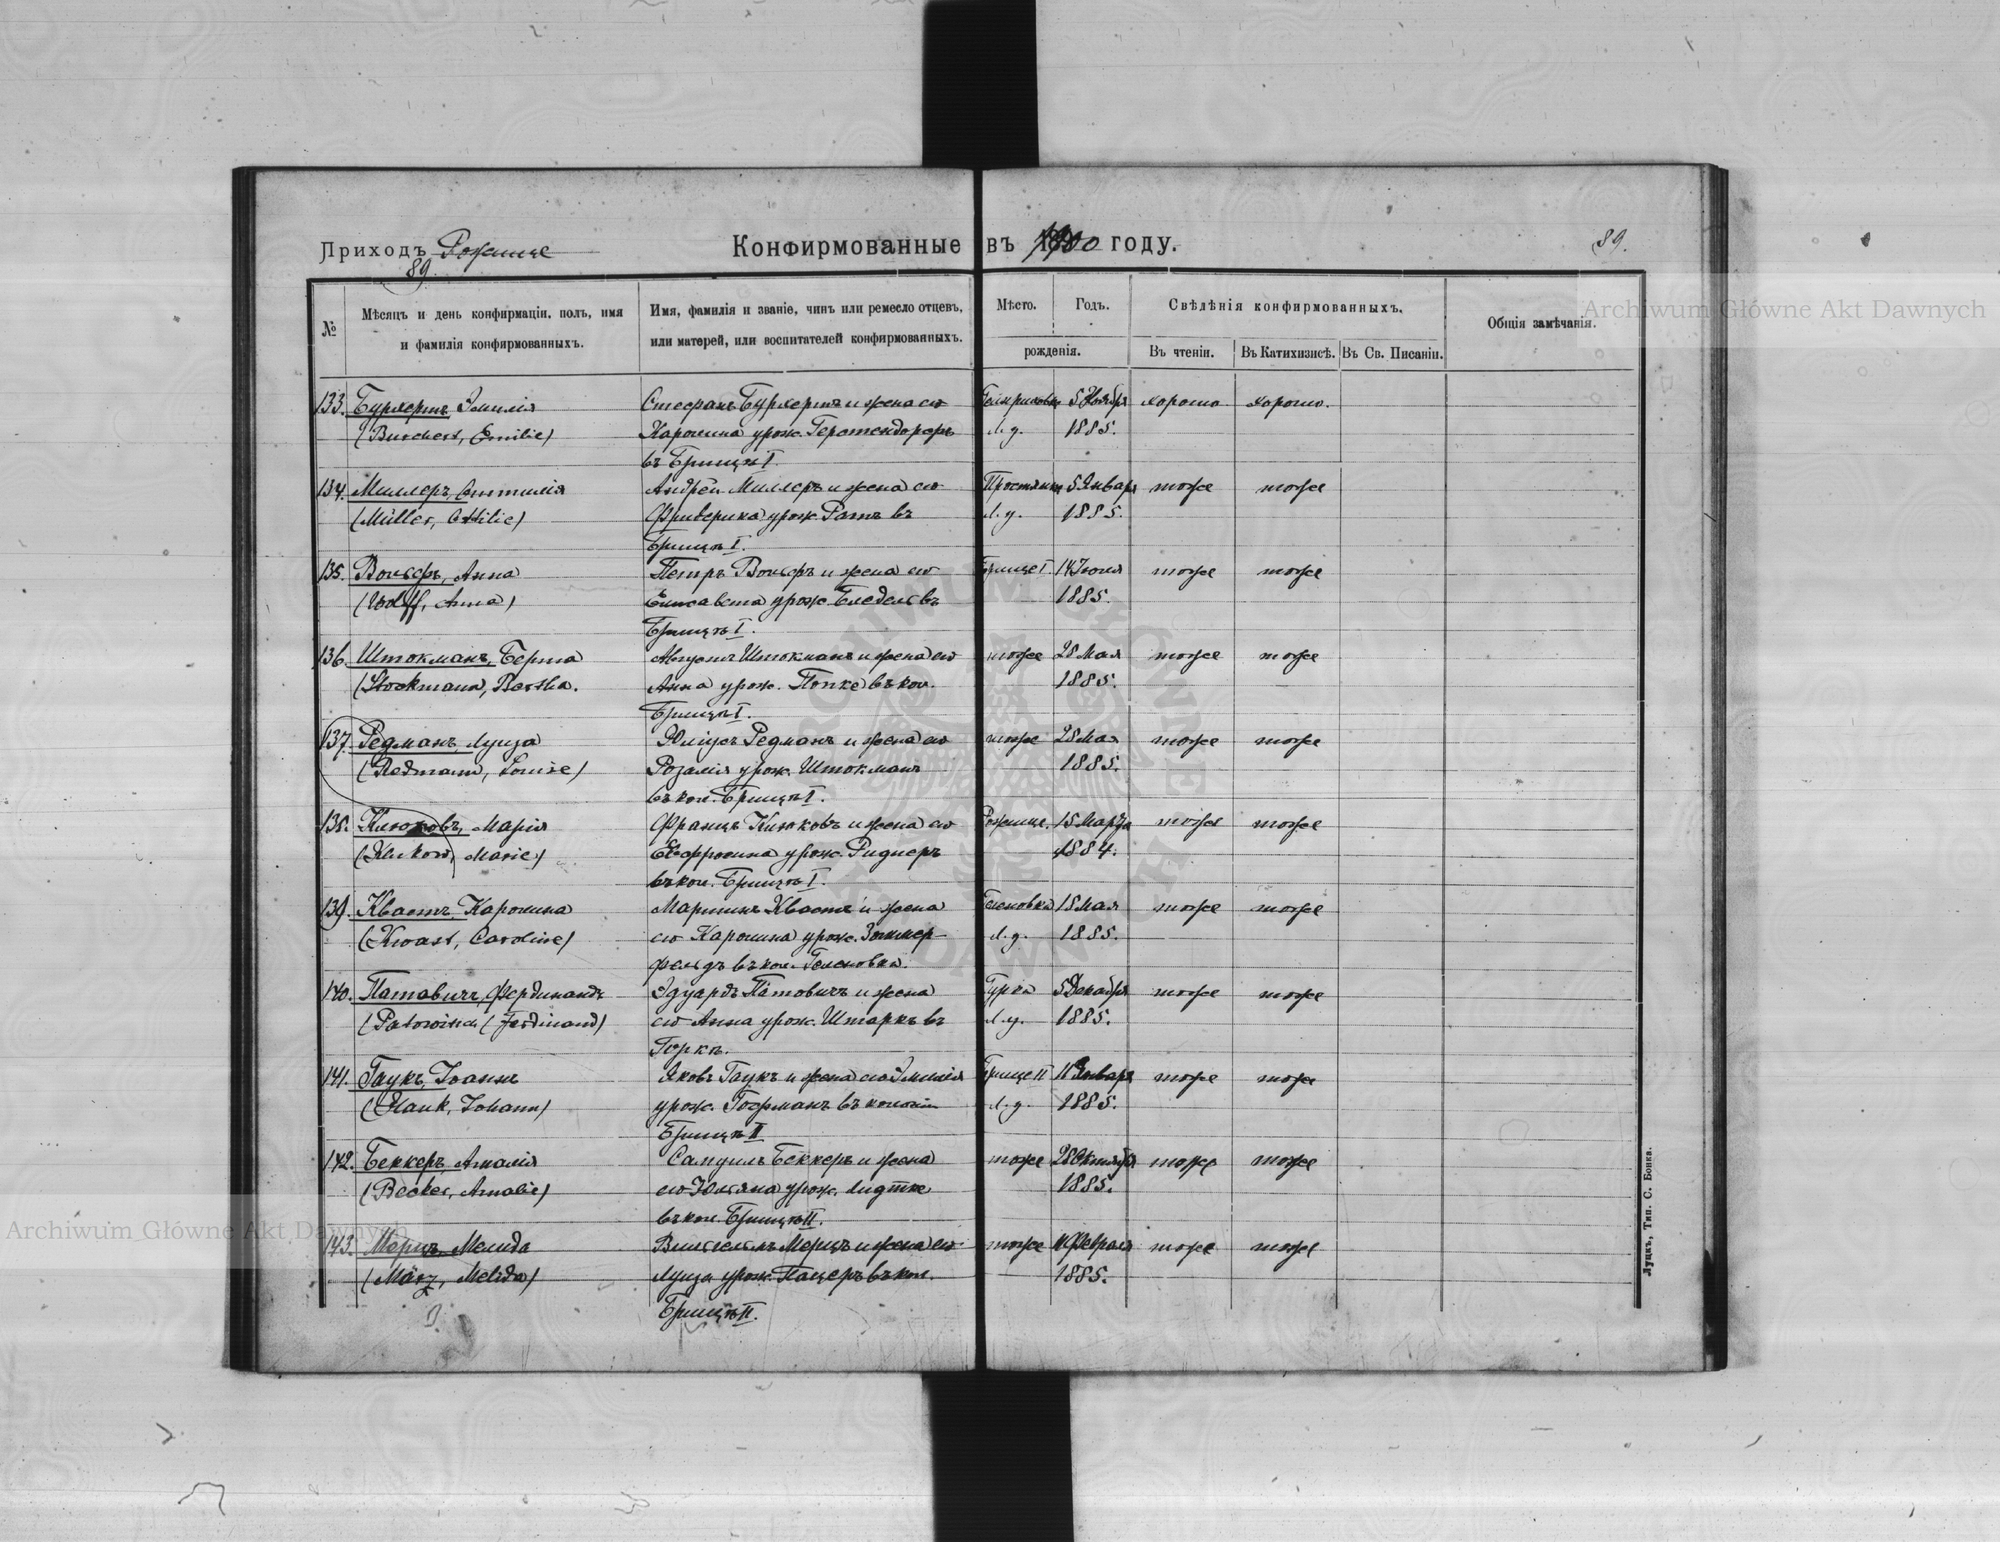 Приходъ Рожище
Конфирмованные въ 1900 году.
89.
89.
№
Мѣсяцъ и день конфирмаціи, полъ, имя и фамилія конфирмованныхъ.
Имя, фамилія и званіе, чинъ или ремесло отцевъ, или матерей, или воспитателей конфирмованныхъ.
Мѣсто.
Годъ.
рожденія.
Свѣлѣнія конфирмованныхъ.
Въ чтеніи.
Въ Катихизисѣ.
Въ Св. Писаніи.
Общія замѣчанія.
133. Бурхертъ, Эмилія Стефанъ Бурхертъ и жена его 5 Ноября хорошо хорошо.
(Burchert, Emilie) Каролина урож. Герстендорфъ Л.у. 1885.
въ Брищѣ I.
134. Миллеръ, Оттилія Андрей Миллеръ и жена его 5 Января тоже тоже
(Müller, Ottilie) Фридерика урож. Ратъ въ Л.у. 1885.
Брищѣ I.
135. Вольфъ, Анна Петръ Вольфъ и жена его Брище I. 14 Іюля тоже тоже
(Wolff, Anna) Елисавета урож. въ 1885.
Брищѣ I.
136. Штокманъ, Берта Августъ Штокманъ и жена его тоже 28 Мая тоже тоже
(Stockmann, Bertha. Анна урож. Попке въ кол. 1885.
Брищѣ I.
137. Редманъ, Луиза Юліусъ Редманъ и жена его тоже 28 Мая тоже тоже
(Redmann, Louise) Розалія урож. Штокманъ 1885.
въ кол. Брищѣ I.
138. Клюковъ, Марія Францъ Клюковъ и жена его Рожище. 15 Марта тоже тоже
(Klukow, Marie) Евфросина урож. Ридигеръ 1884.
въ кол. Брищѣ I.
139. Квастъ, Каролина Мартинъ Квастъ и жена Геленовка 18 Мая тоже тоже
(Kwast, Caroline) его Каролина урож. Зоммер- Л.у. 1885.
фельдъ въ кол. Геленовка.
140. Патовичъ, Фердинандъ Эдуардъ Патовичъ и жена Гурка 5 Декабря тоже тоже
(Patowich (Ferdinand) его Анна урож. Штаркъ въ Л.у. 1885.
Горкѣ.
141. Гаукъ, Іоаннъ Яковъ Гаукъ и жена его Эмилія Брище II 11 Января тоже тоже
(Hauk, Johann) урож. Гофманъ въ колоніи Л.у. 1885.
Брищѣ II
142. Беккеръ, Амалія Самуилъ Беккеръ и жена тоже 28 Октября тоже тоже
(Becker, Amalie) его Юліана урож. Лидтке 1885.
въ кол. Брищѣ II.
143. Мерцъ, Мелида Вильгельмъ Мерцъ и жена его тоже Февраля тоже тоже
(März, Melida) Луиза урож. Пацеръ въ кол. 1885.
Брищѣ II.
Луцкъ, Тип. С. Бонка.
Archiwum Główne Akt Dawnych
Archiwum Główne Akt Dawnych